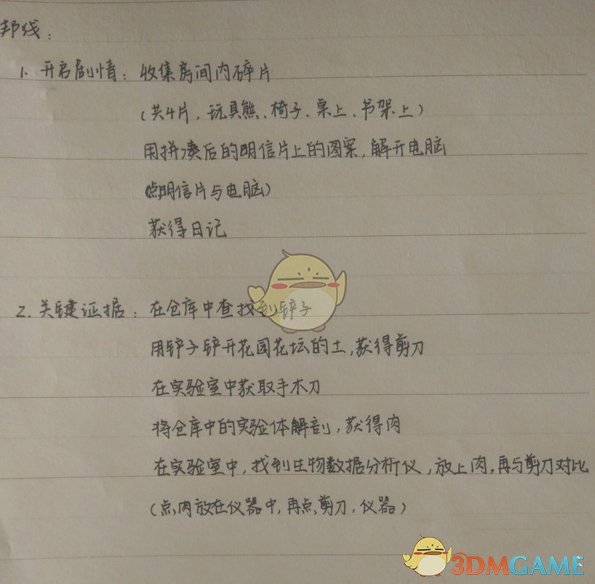 邦线：
1. 开启剧情：收集房间内碎片
（共4片，玩具熊、椅子、桌上、书架上）
用拼凑后的明信片上的图案，解开电脑
（点明信片与电脑）
获得日记
2. 关键证据：在仓库中查找到铲子
用铲子铲开花园花坛的土，获得剪刀
在实验室中获取手术刀
将仓库中的实验体解剖，获得肉
在实验室中，找到生物数据分析仪，放上肉，再与剪刀对比
（点肉放在仪器中，再点剪刀，仪器）
3DMGAME